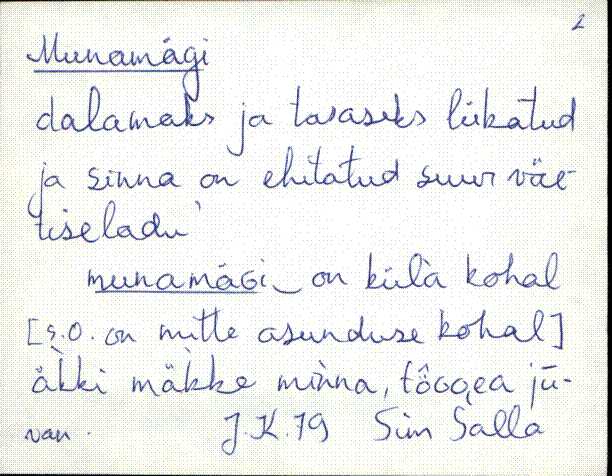 2
Munamägi
dalamaks ja tasaseks lükatud
ja sinna on ehitatud suur väe-
tiseladu'
munamäGi on küla kohal
[s.o. on mitte asunduse kohal]
äkki mäkke minna, jü-
van. J.K.79 Siin Salla